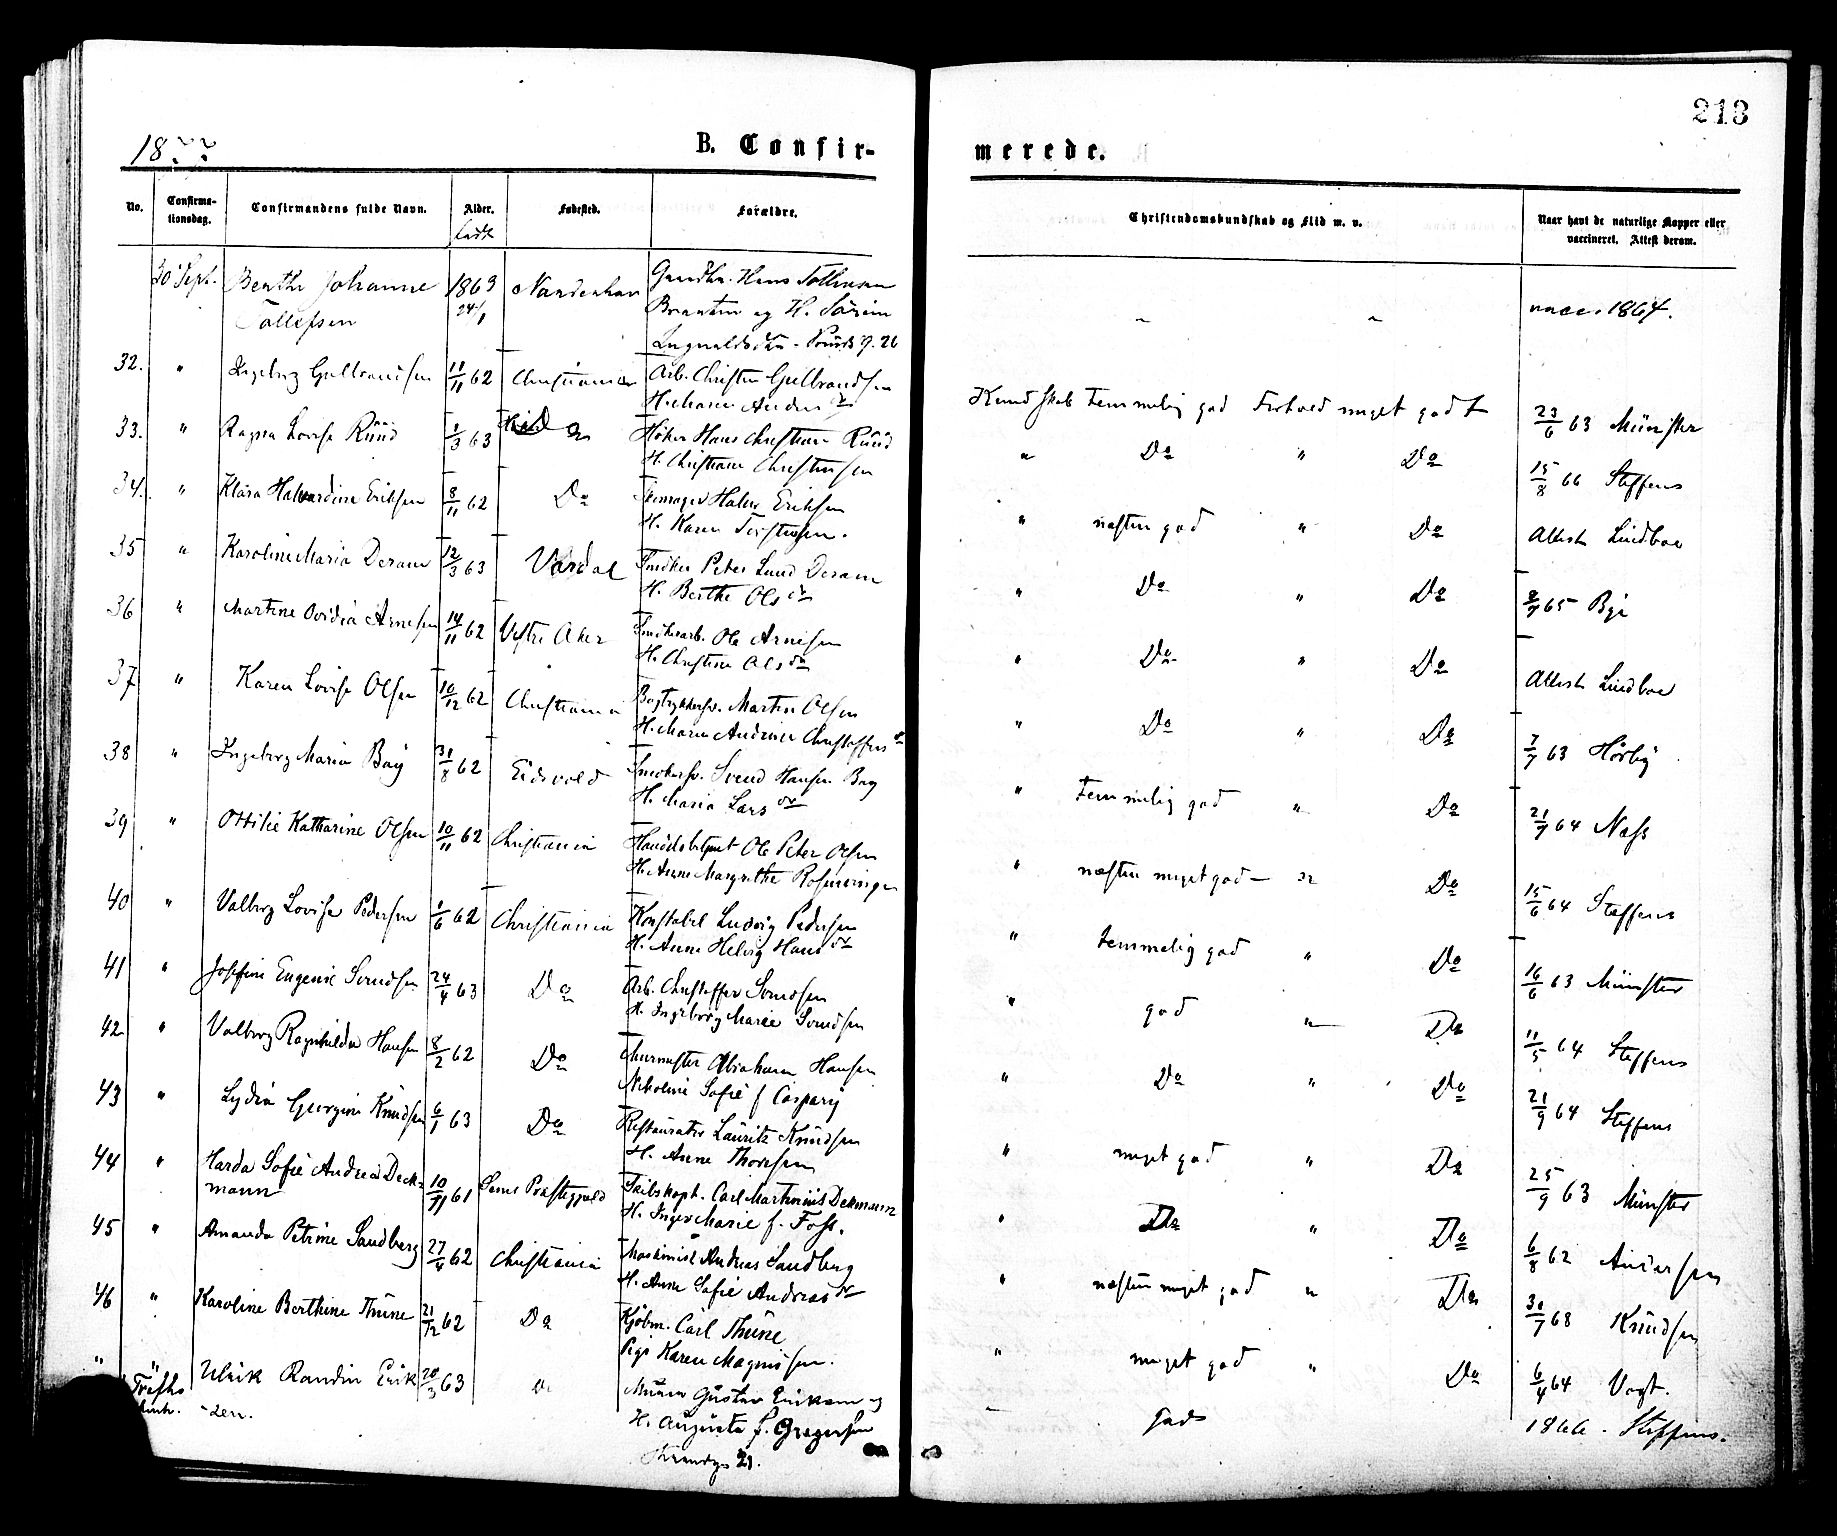 213
1877.
B. Confir-
merede.
No.
Confirma-
tionsdag.
Confirmandens fulde Navn.
Alder.
født
Fødested.
Forældre.
Christendomskundskab og Flid m. v.
Naar havt de naturlige Kopper eller
vaccineret. Attest derom.
30 Sept. Berthe Johanne 1863 Hans
24/1
vacc. 1864.
32. " Ingeborg Gulbrandsen 11/11 62 Christiania Arb. Christen Gulbrandsen
Kundskab temmelig god Forhold meget godt 23/6 63 Münster
33. " Ragna Lovise Ruud 1/3 63 Do Høker Hans Christian Ruud
H. Christiane Christensen
" Do " Do 15/8 66 Steffens
34. " Klara Halvardine Eriksen 8/11 62 Do Eriksen
H. Karen
" næsten god " Do Attest Lindboe
35 " Karoline Maria Deram 12/3 63 Vardal Snedker Peter Lund Deram
H. Berthe Olsdr
" Do " Do 65 Bye
36 " Martine Ovidia Arnesen 14/11 62 Vestre Aker Snedkerarb. Ole Arnesen
H. Christine Olsdr
" Do " Do Attest Lindboe
37 " Karen Lovise Olsen 10/12 62 Christiania Bogtrykkersv. Martin Olsen
H. Maren Andrine Christoffersdr
" Do " Do 7/7 63 Hørbÿ
38 " Ingeborg Maria Baÿ 31/8 62 Eidsvold Snedkersv. Svend Hansen Bay
H. Maria Larsdr
" Temmelig god " Do 21/7 64 Næss
39 " Ottilie Katharine Olsen 10/11 62 Christiania Handelsbetjent Ole Peter Olsen
H. Anne Margrethe Rosenvinge
" næsten meget god " Do 15/6 64 Steffens
40 " Valborg Lovise Pedersen 1/6 62 Christiania Konstabel Ludvig Pedersen
H. Anne Helvig Hansdr
" temmelig god " Do 16/6 63 Münster
41 " Josefine Eugenie Svendsen 24/4 63 Do Arb. Christoffer Svendsen
H. Ingeborg Marie Svendsen
" god " Do 11/5 64 Steffens
42 " Valborg Ragnhilda Hansen 8/2 62 Do Murmester Abraham Hansen
Nikoline Sofie f Casparÿ
" Do " Do 21/9 64 Steffens
43 " Lydia Georgine Knudsen 6/1 63 Do Restauratør Lauritz Knudsen
H. Anne Thoresen
" meget god " Do 25/9 63 Münster
44 " Harda Sofie Andrea Deck-
mann 10/11 61 Sems Præstegjeld Skibskapt. Carl Martinius Dekmann
H. Inger Marie f. Foss.
" Do " Do 6/8 62 Andersen
45 " Amanda Petrine Sandberg 27/4 62 Christiania Maskinist Andreas Sandberg
H. Anne Sofie Andreasdr
" næsten meget god " Do 31/7 68 Knudsen
46 " Karoline Berthine Thüne 21/12 62 Do Kjøbm. Carl Thüne
Pige Karen Magnussen.
" meget god " Do 6/4 64 Vogt.
" Ulrik Randin Erik 20/3 63 Do Murer Gustav Eriksen og
-sen. H. Augusta f. Gregersen
21.
God 1866. Steffens.